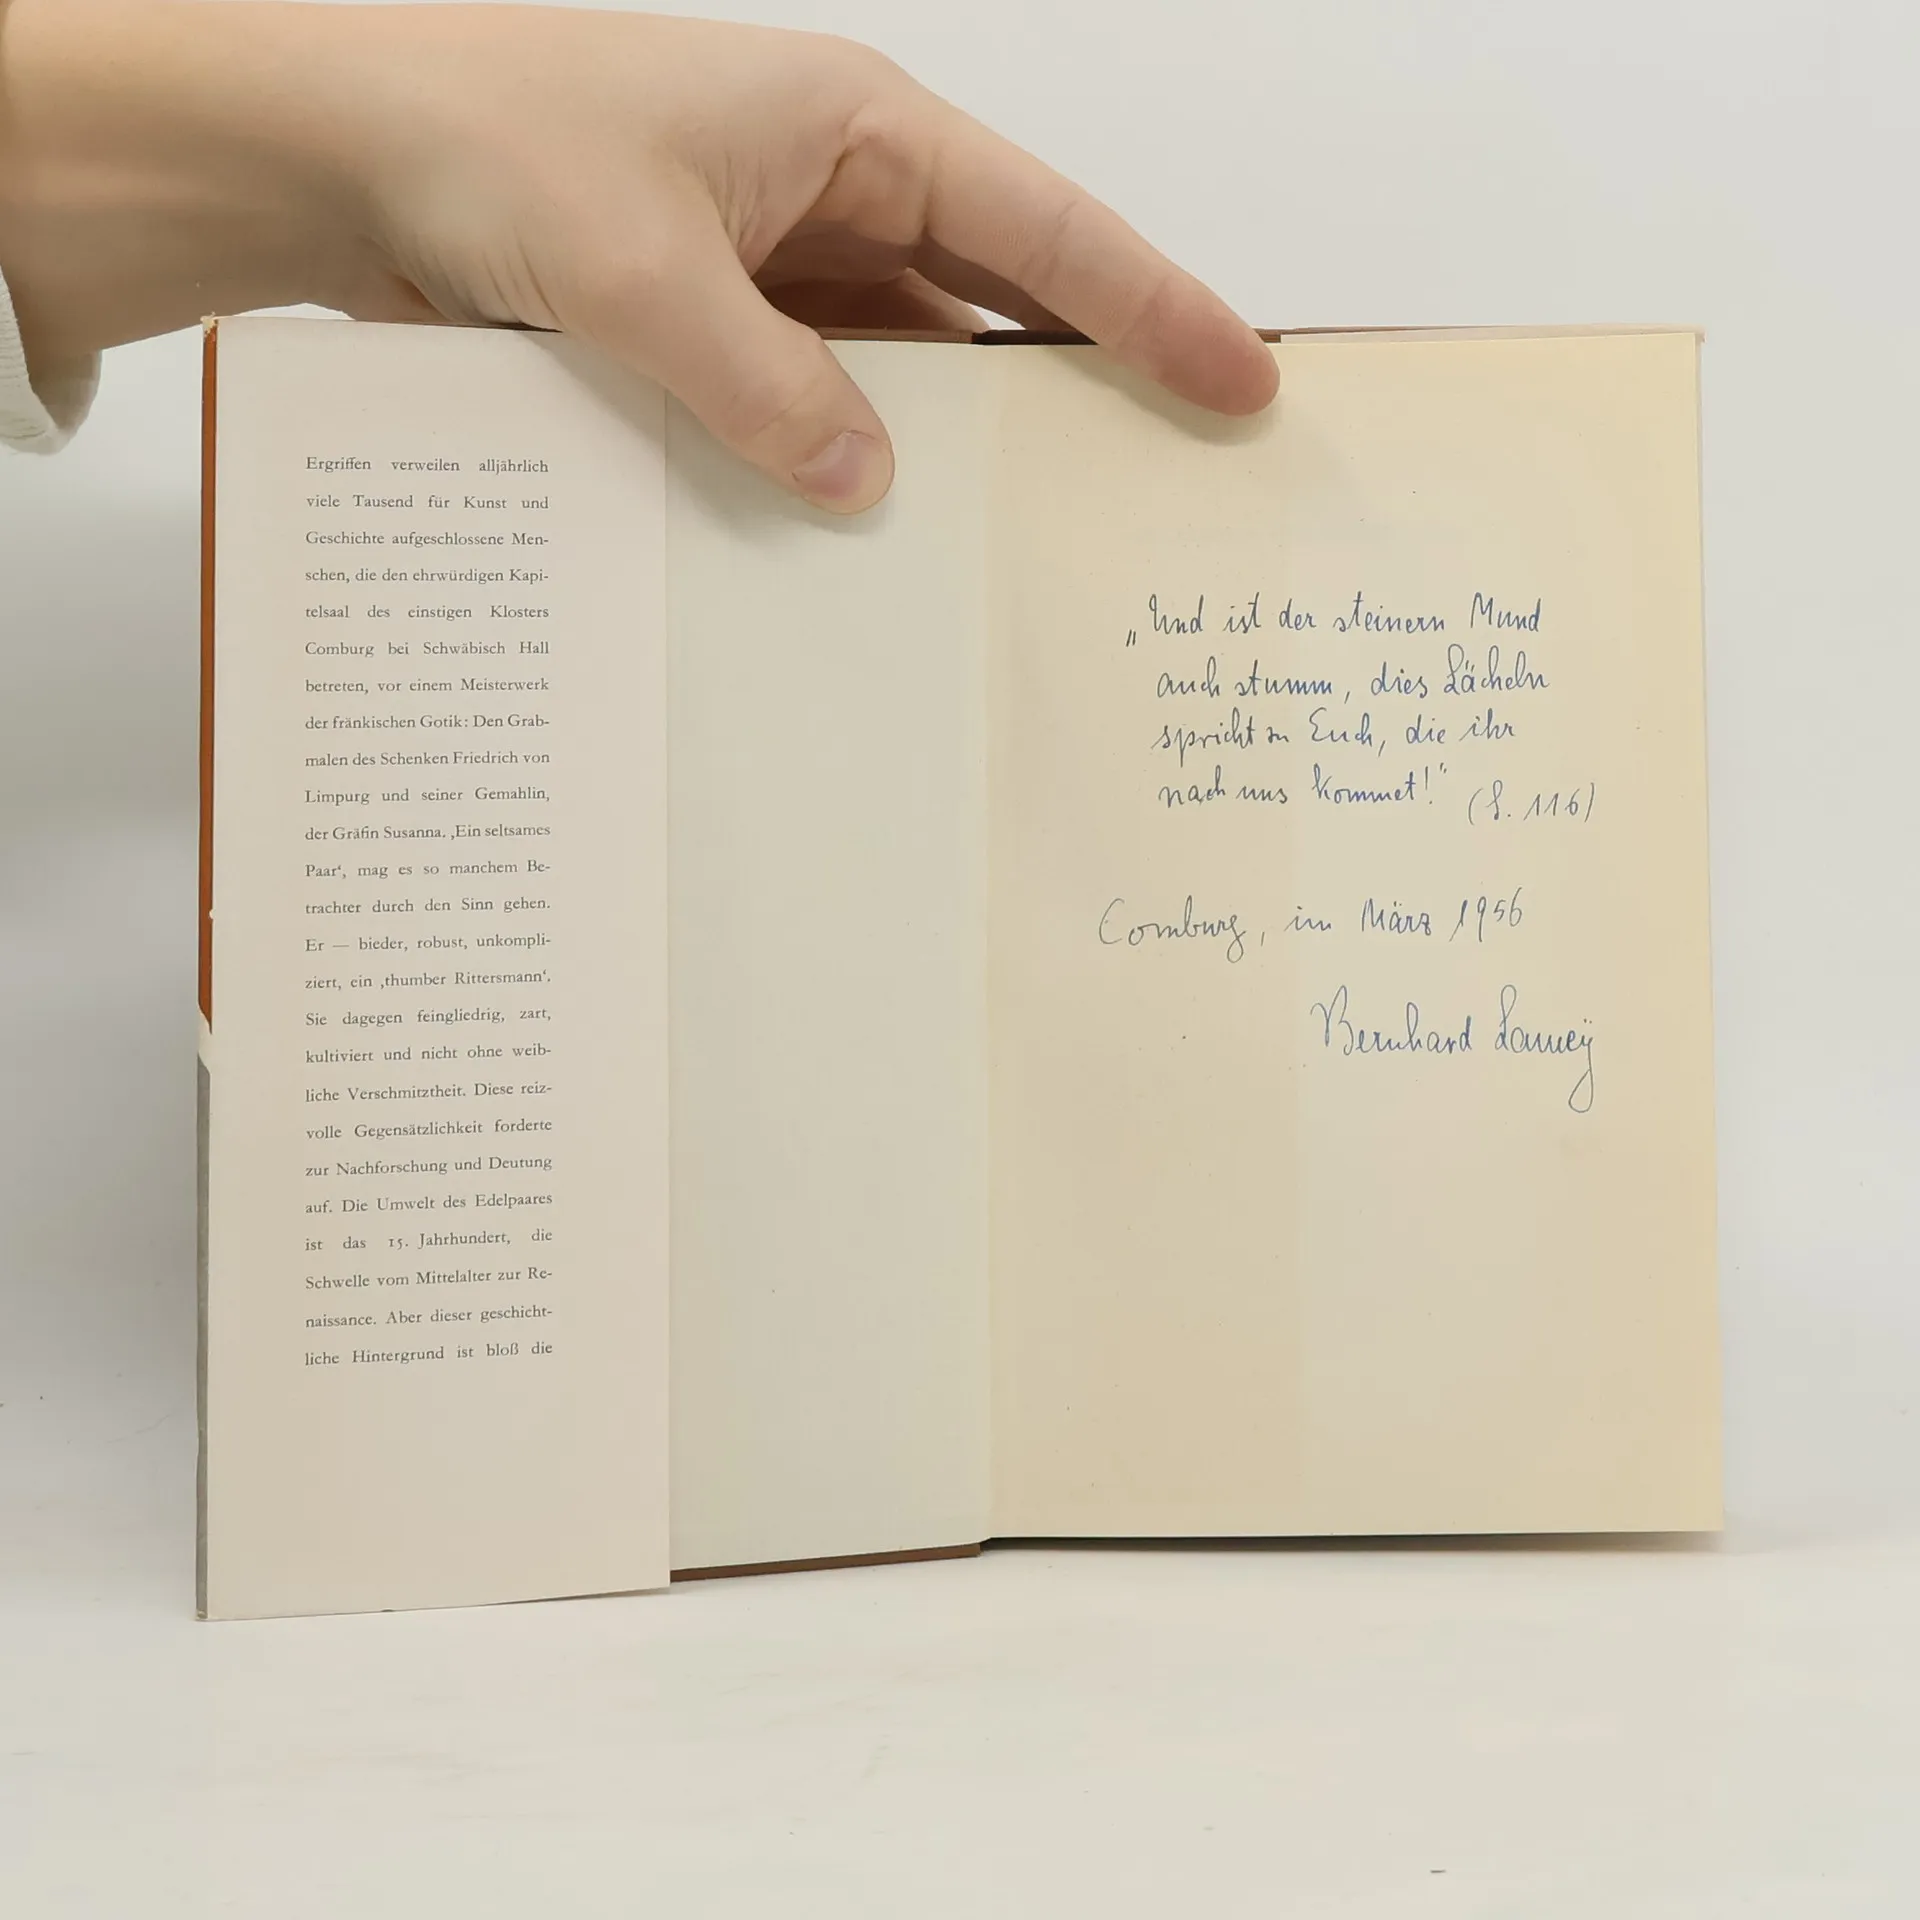 Ergriffen verweilen alljährlich
viele Tausend für Kunst und
Geschichte aufgeschlossene Men-
schen, die den ehrwürdigen Kapi-
telsaal des einstigen Klosters
Comburg bei Schwäbisch Hall
betreten, vor einem Meisterwerk
der fränkischen Gotik: Den Grab-
malen des Schenken Friedrich von
Limpurg und seiner Gemahlin,
der Gräfin Susanna. ‚Ein seltsames
Paar‘, mag es so manchem Be-
trachter durch den Sinn gehen.
Er — bieder, robust, unkompli-
ziert, ein ‚thumber Rittersmann‘.
Sie dagegen feingliedrig, zart,
kultiviert und nicht ohne weib-
liche Verschmitztheit. Diese reiz-
volle Gegensätzlichkeit forderte
zur Nachforschung und Deutung
auf. Die Umwelt des Edelpaares
ist das 15. Jahrhundert, die
Schwelle vom Mittelalter zur Re-
naissance. Aber dieser geschicht-
liche Hintergrund ist bloß die
„Und ist der steinern Mund
auch stumm, dies Lächeln
spricht zu Euch, die ihr
nach uns kommet!“ (S. 116)
Comburg, im März 1956
Bernhard Lameÿ